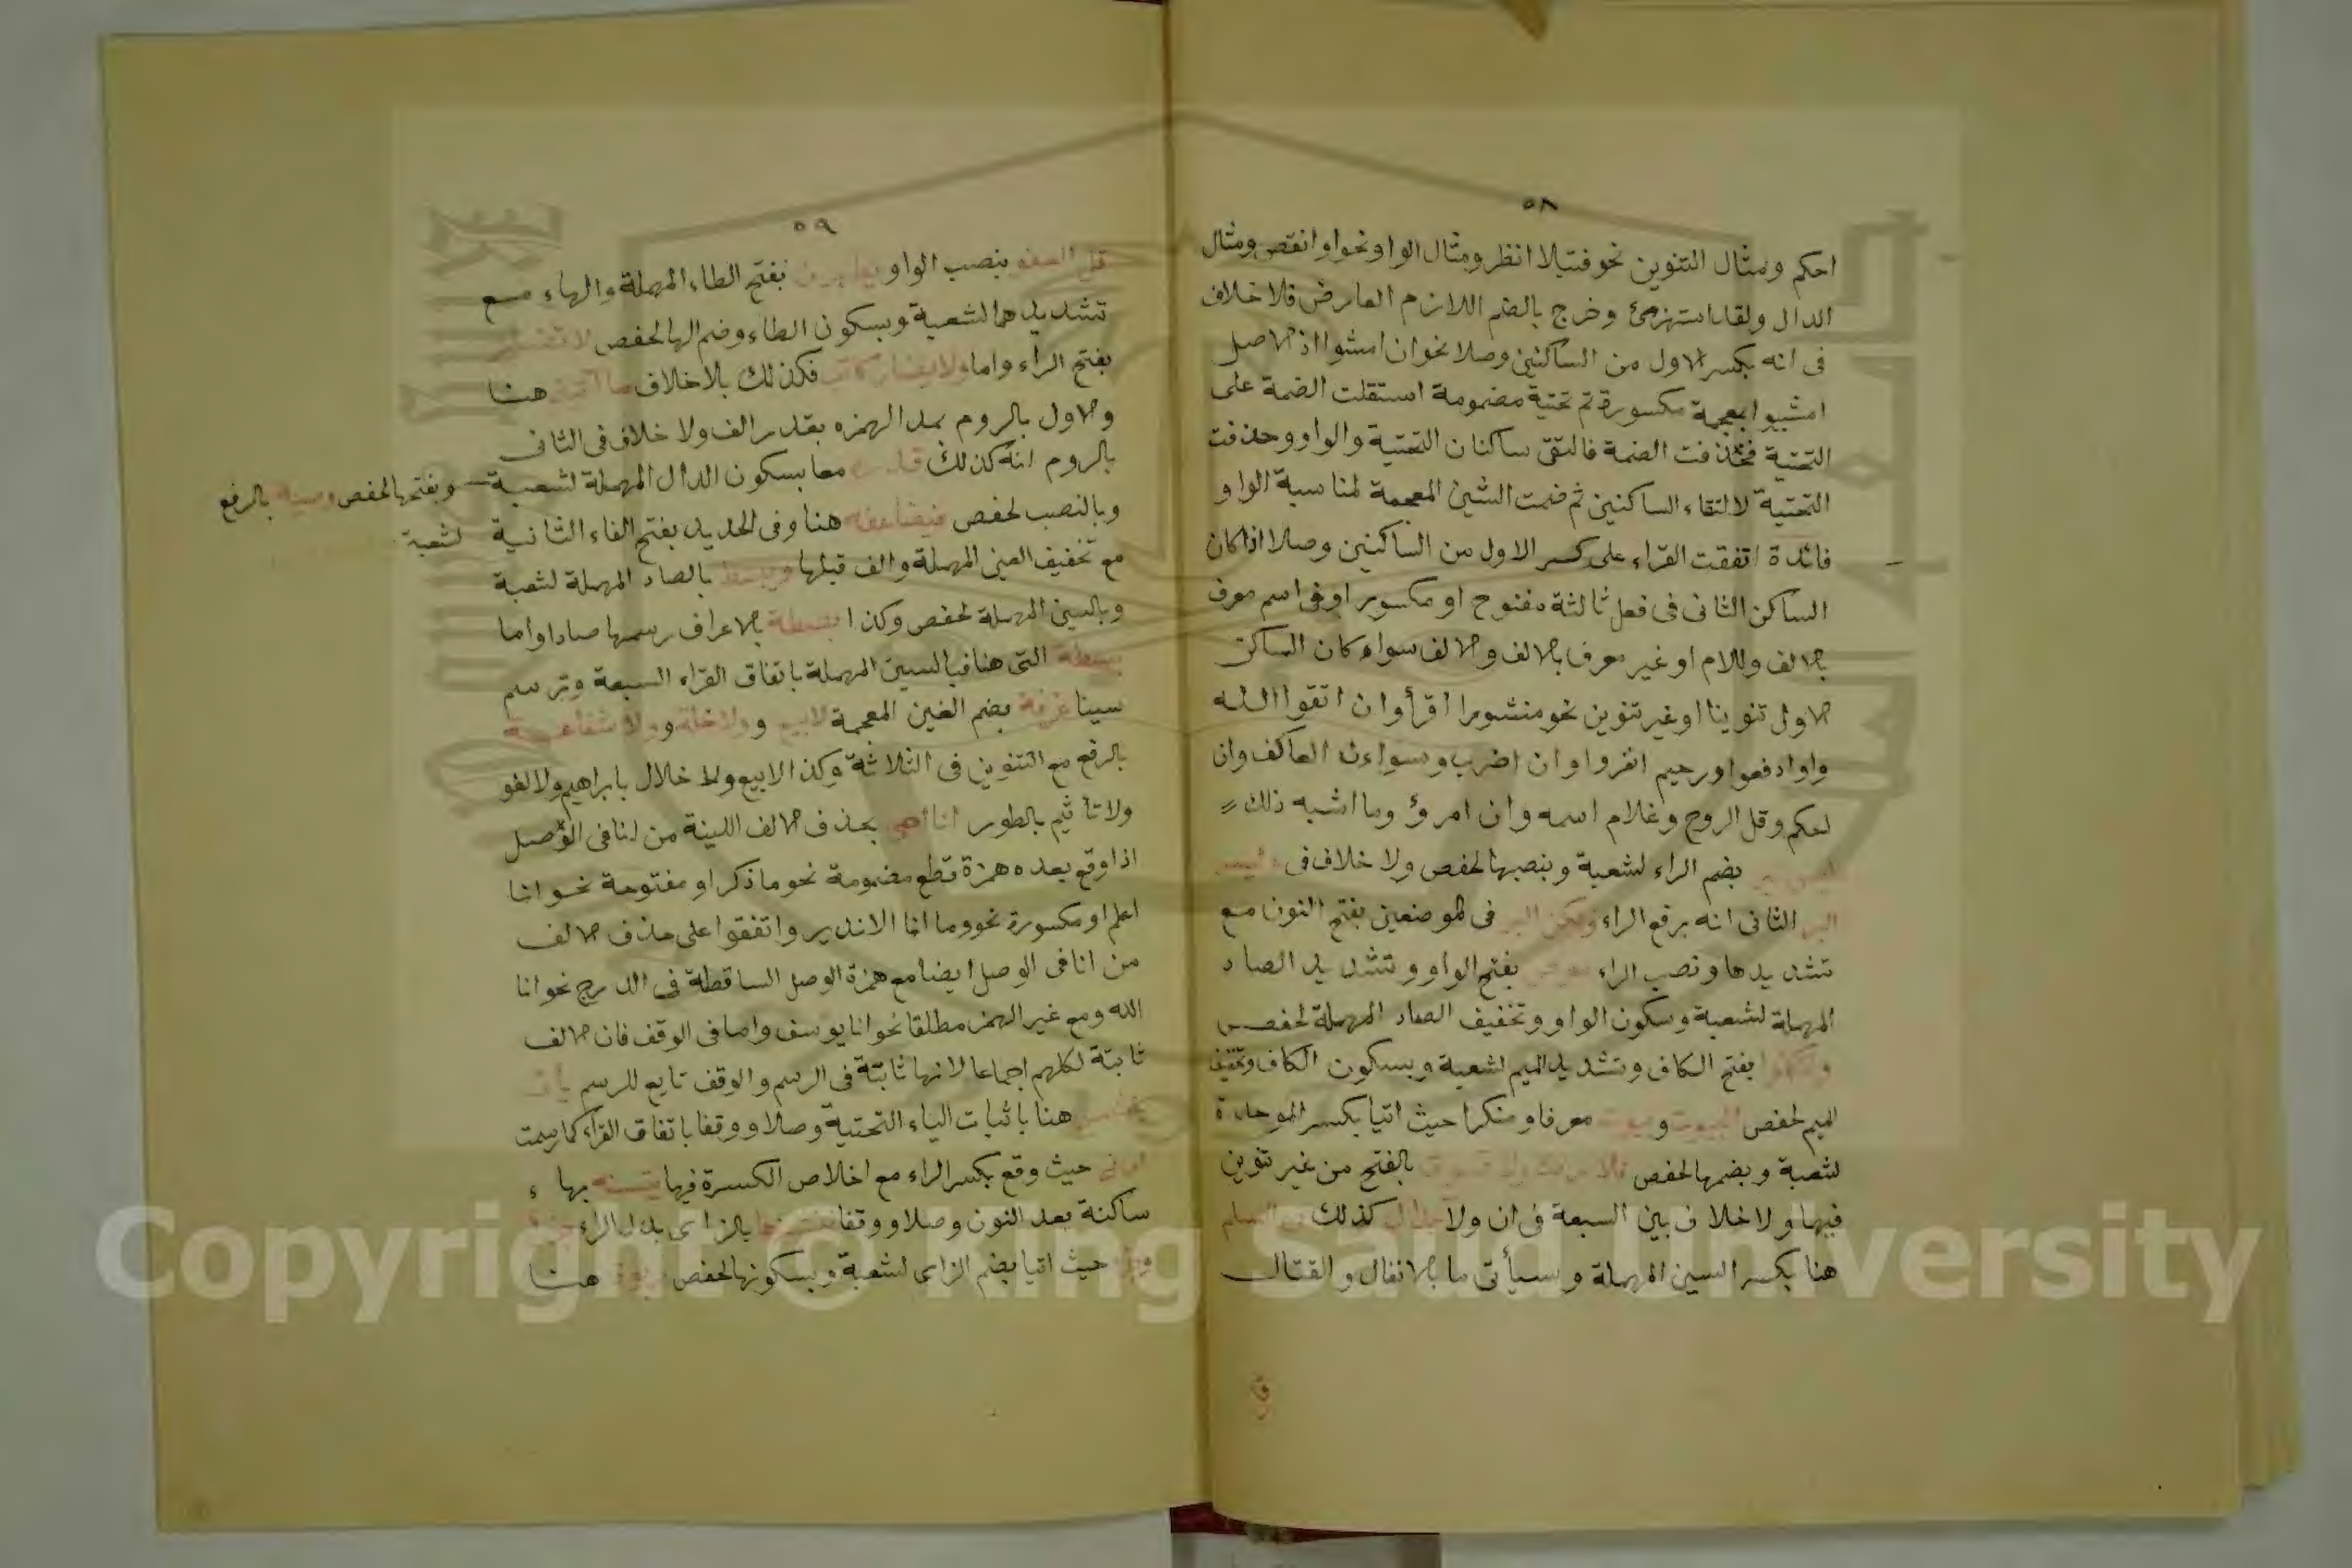 ٥٨
احكم ومثال التنوين نحو فتيلا انظر ومثال الواو نحو او انقص ومثال
الدال ولقد استهزئ وخرج بالضم اللازم العارض فلا خلاف
فى انه بكسر الاول من الساكنين وصلا نحو ان امشوا اذ الاصل
امشيوا بمعجمة مكسورة ثم تحتية مضمومة استقلت الضمة على
التحتية فحذفت الضمة فالتقى ساكنان التحتية والواو وحذفت
التحتية لالتقاء الساكنين ثم ضمت الشين المعجمة لمناسبة الواو
فائدة اتفقت القراء على كسر الاول من الساكنين وصلا اذا كان
الساكن الثانى فى فعل ثالثة مفتوح او مكسور او فى اسم معرف
بالالف واللام او غير معرف بالالف والالف سواء كان الساكن
الاول تنوينا او غير تنوين نحو منشورا اقرأ وان اتقوا الله
واو ادفعوا ورحيم انفروا وان اضرب وسواءن العاكف وان
لحكم وقل الروح وغلام اسمه وان امرؤ وما اشبه ذلك
ليس البر بضم الراء لشعبة وبنصبها لحفص ولا خلاف فى وليس
البر الثانى انه برفع الراء ولكن البر فى الموضعين بفتح النون مع
تشديدها ونصب الراء موص بفتح الواو وتشديد الصاد
المهملة لشعبة وسكون الواو وتخفيف الصاد المهملة لحفص
ولتكملوا بفتح الكاف وتشديد الميم لشعبة وبسكون الكاف وتخفيف
الميم لحفص البيوت وبيوت معرفا ومنكرا حيث اتيا بكسر الموحدة
لشعبة وبضمها لحفص فلا رفث ولا فسوق بالفتح من غير تنوين
فيها ولا خلاف بين السبعة فى ان ولا جدال كذلك فى السلم
هنا بكسر السين المهملة وسيأتى ما بالانفال والقتال
٥٩
قل العفو بنصب الواو يطهرن بفتح الطاء المهملة والهاء مع
تشديدهما لشعبة وبسكون الطاء وضم الها لحفص لا تضار
بفتح الراء واما ولا يضار كاتب فكذلك بلا خلاف ما اتيتم هنا
والاول بالروم بمد الهمزه بقدر الف ولا خلاف فى الثانى
بالروم انه كذلك قدره معا بسكون الدال المهملة لشعبة
وبفتحها لحفص وصية بالرفع
لشعبة
وبالنصب لحفص فيضاعفه هنا وفى الحديد بفتح الفاء الثانية
مع تخفيف العين المهملة والف قبلها ويبسط بالصاد المهملة لشعبة
وبالسين المهملة لحفص وكذا بصطة بالاعراف رسمها صادا واما
بسطة التى هنا فبالسين المهملة باتفاق القراء السبعة وترسم
سينا غرفة بضم الغين المعجمة لا بيع وولا خلة وولا شفاعة
بالرفع مع التنوين فى الثلاثة وكذا لا بيع ولا خلال بابراهيم ولا لغو
ولا تأثيم بالطور انا احى بحذف الالف اللينة من انا فى الوصل
اذا وقع بعده همزة قطع مضمومة نحو ما ذكر او مفتوحة نحو انا
اعلم او مكسورة نحو وما انا الا نذير واتفقوا على حذف الالف
من انا فى الوصل ايضا مع همزة الوصل الساقطة فى الدرج نحو انا
الله ومع غير الهمز مطلقا نحو انا يوسف واما فى الوقف فان الالف
ثابتة لكلهم اجماعا لانها ثابتة فى الرسم والوقف تابع للرسم يأتى
بالشمس هنا باثبات الياء التحتية وصلا ووقفا باتفاق القراء كما رسمت
ارنى حيث وقع بكسر الراء مع اخلاص الكسرة فيها يتسنه بهاء
ساكنة بعد النون وصلا ووقفا ننشزها بالزاى بدل الراء جزءا
وجزء حيث اتيا بضم الزاى لشعبة وبسكونها لحفص بربوة هنا
Copyright © King Saud University